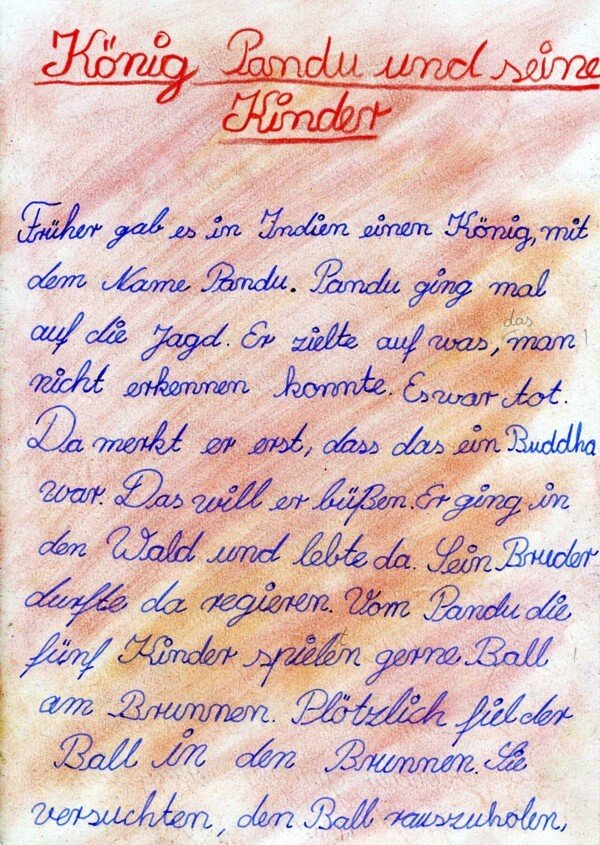 König Pandu und seine
Kinder
Früher gab es in Indien einen König, mit
dem Name Pandu. Pandu ging mal
auf die Jagd. Er zielte auf was, das man
nicht erkennen konnte. Es war tot.
Da merkt er erst, dass das ein Buddha
war. Das will er büßen. Er ging in
den Wald und lebte da. Sein Bruder
durfte da regieren. Vom Pandu die
fünf Kinder spielten gerne Ball
am Brunnen. Plötzlich fiel der
Ball in den Brunnen. Sie
versuchten, den Ball rauszuholen,